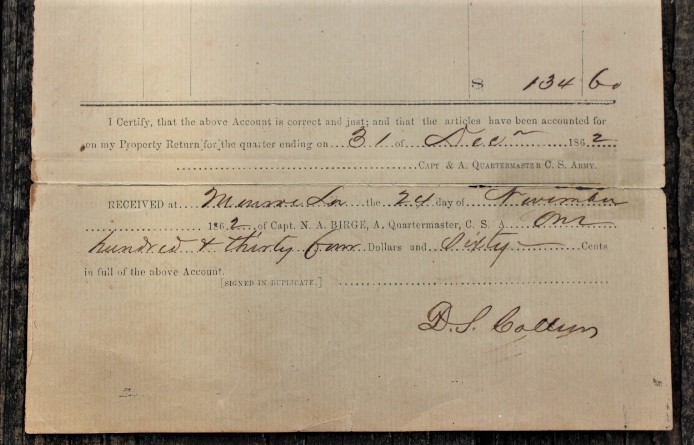 $ 134 60
I Certify, that the above Account is correct and just; and that the articles have been accounted for
on my Property Return for the quarter ending on 31 of Decr 1862
CAPT & A. QUARTERMASTER C. S. ARMY.
RECEIVED at Monroe La the 24 day of November
1862 of Capt. N. A. BIRGE, A. Quartermaster, C. S. A. One
hundred & thirty four Dollars and Sixty Cents
in full of the above Account.
[SIGNED IN DUPLICATE.]
D. S.